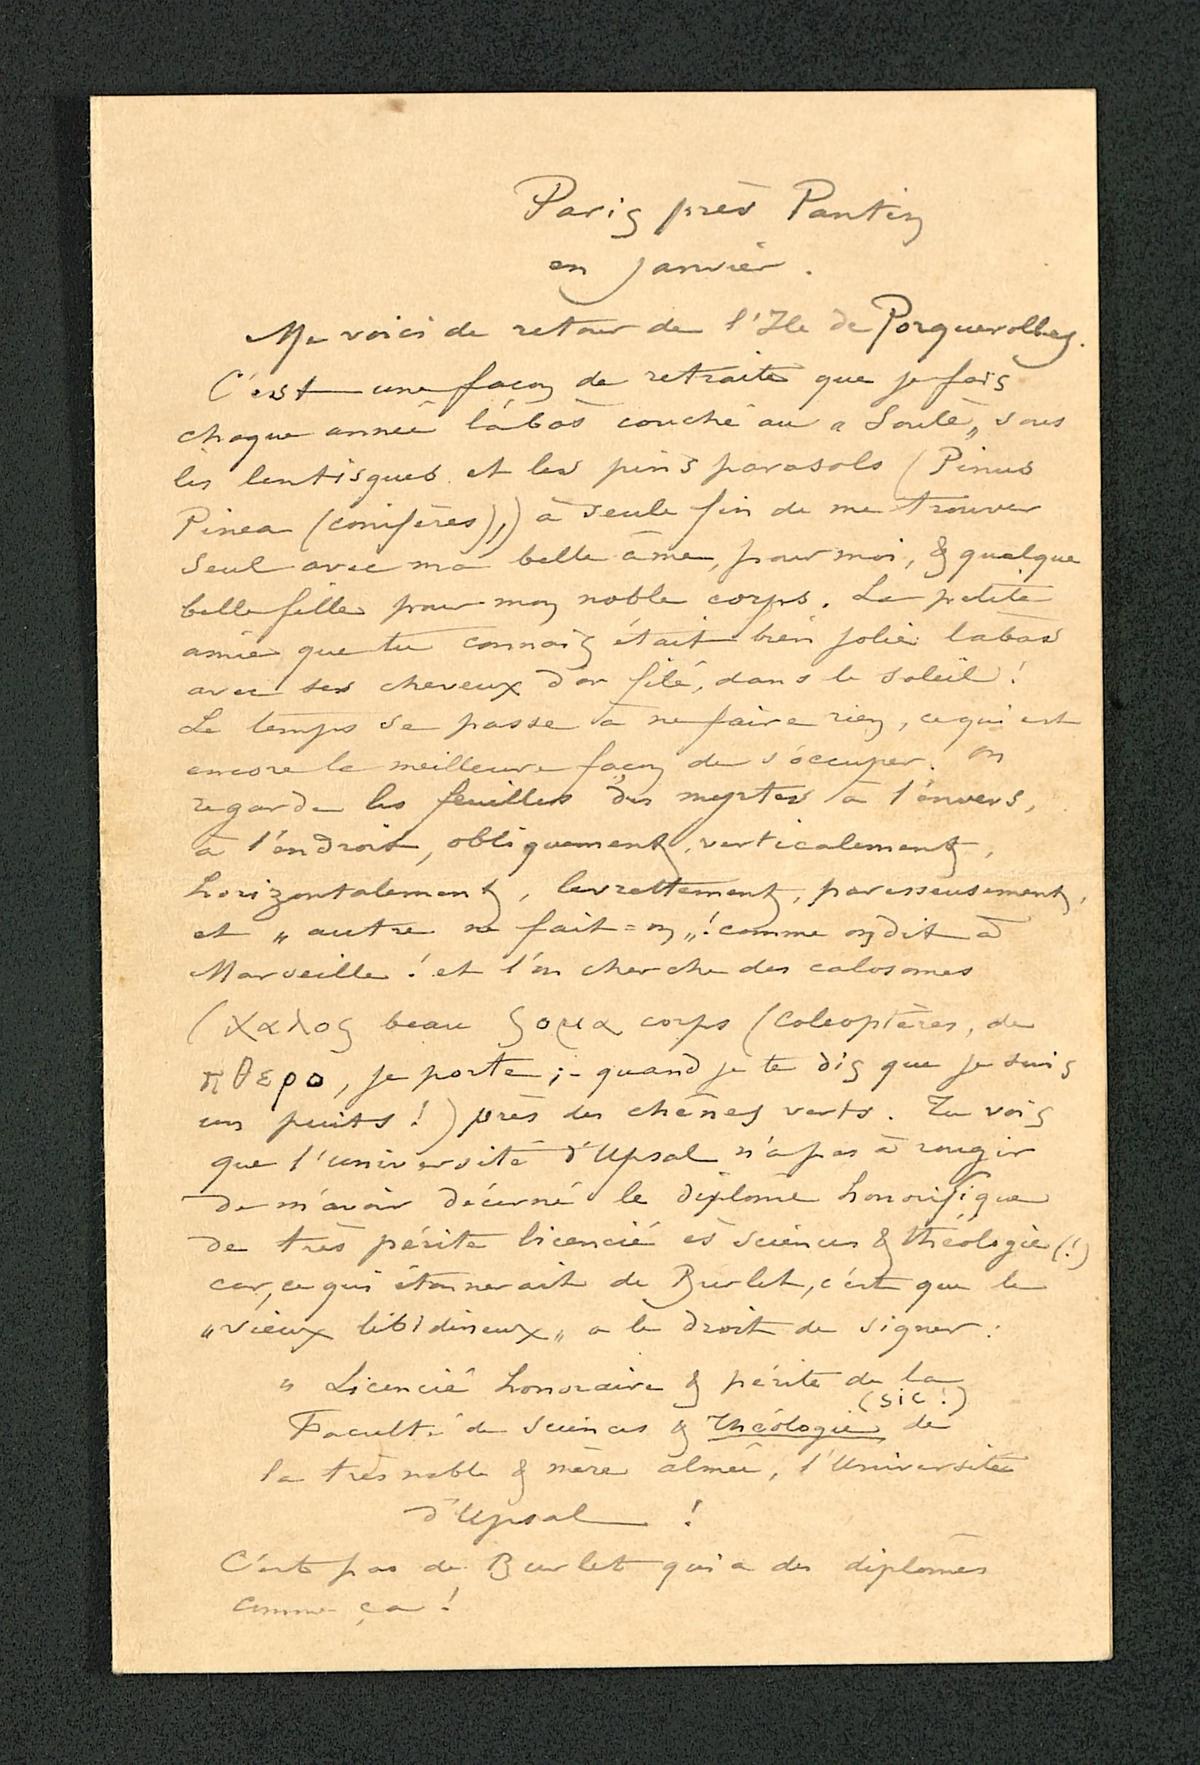 Paris près Pantin
en Janvier.
Me voici de retour de l'Ile de Porquerolles.
C'est une façon de retraite que je fais
chaque année làbas couché au « Soulè„ sous
les lentisques et les pins parasols (Pinus
Pinea (conifères),) à seule fin de me trouver
seul avec ma belle âme, pour moi, & quelque
belle fille pour mon noble corps. La petite
amie que tu connais était bien jolie labas
avec ses cheveux d'or filé, dans le soleil!
Le temps se passe à ne faire rien, ce qui est
encore la meilleure façon de s'occuper. On
regarde les feuilles des myrtes à l'envers,
à l'endroit, obliquement, verticalement,
horizontalement, levrettement, paresseusement,
et „ autre ne fait=on „! comme on dit à
Marseille! et l'on cherche des calosomes
(χαλος beau ςομα corps (coleoptères, de
πθερο, je porte;- quand je te dis que je suis
un puits!) près des chênes verts. Tu vois
que l'université d'Upsal n'a pas à rougir
de m'avoir décerné le diplome honorifique
de très périte licencié ès sciences & théologie (!)
car, ce qui étonnerait de Burlet, c'est que le
„vieux libidineux„ a le droit de signer:
„ Licencié honoraire & périte de la
(sic!)
Faculté de sciences & Théologie de
la très noble & mère almée, l'Université
d'Upsal !
C'est pas de Burlet qui a des diplomes
comme ça!